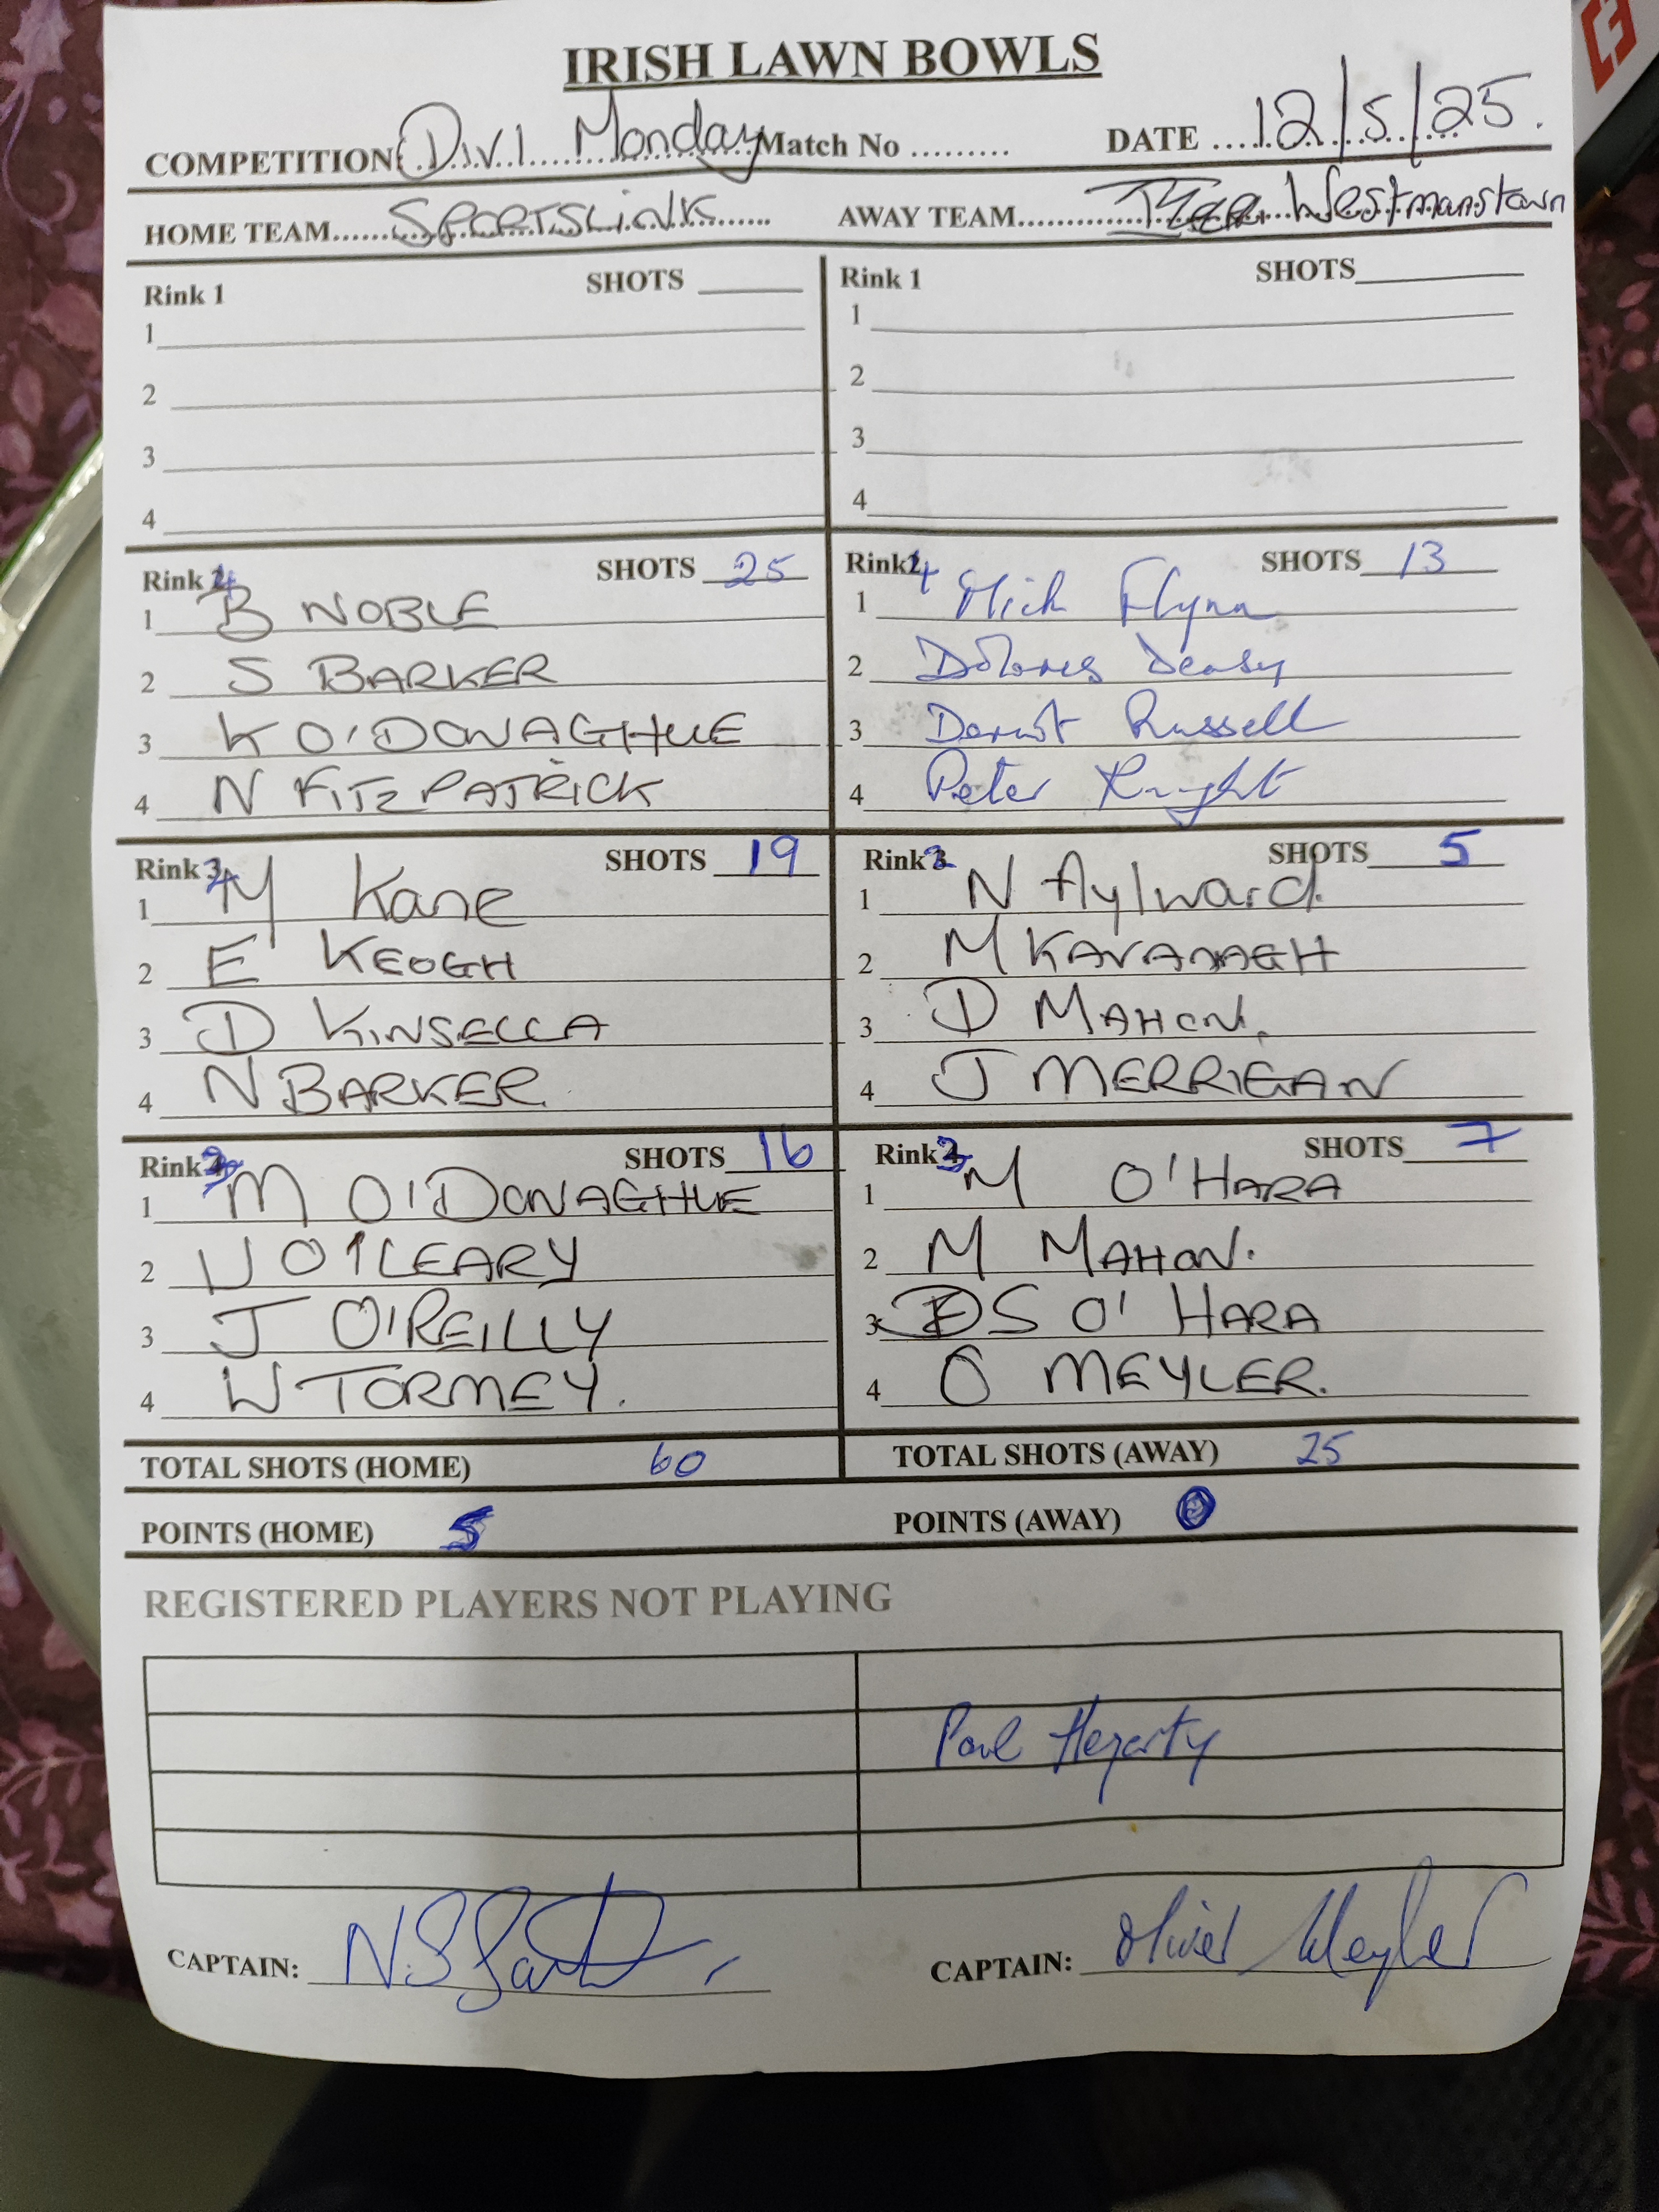 IRISH LAWN BOWLS
COMPETITION: Div 1 Monday Match No ......... DATE 12/5/25.
HOME TEAM SPORTSLINK AWAY TEAM Westmanstown
Rink 1 SHOTS
1
2
3
4
Rink 1 SHOTS
1
2
3
4
Rink 4 SHOTS 25
1 B NOBLE
2 S BARKER
3 K O'DONAGHUE
4 N FITZPATRICK
Rink 4 SHOTS 13
1 Mick Flynn
2 Dolores Deasy
3 Dermot Russell
4 Peter Knight
Rink 2 SHOTS 19
1 M Kane
2 E KEOGH
3 D KINSELLA
4 N BARKER.
Rink 2 SHOTS 5
1 N Aylward.
2 M KAVANAGH
3 D MAHON.
4 J MERRIGAN
Rink 3 SHOTS 16
1 M O'DONAGHUE
2 U O'LEARY
3 J O'REILLY
4 W TORMEY.
Rink 3 SHOTS 7
1 M O'HARA
2 M MAHON.
3 S O'HARA
4 O MEYLER.
TOTAL SHOTS (HOME) 60 TOTAL SHOTS (AWAY) 25
POINTS (HOME) 5 POINTS (AWAY) 0
REGISTERED PLAYERS NOT PLAYING
Paul Hegarty
CAPTAIN: CAPTAIN: Oliver Meyler